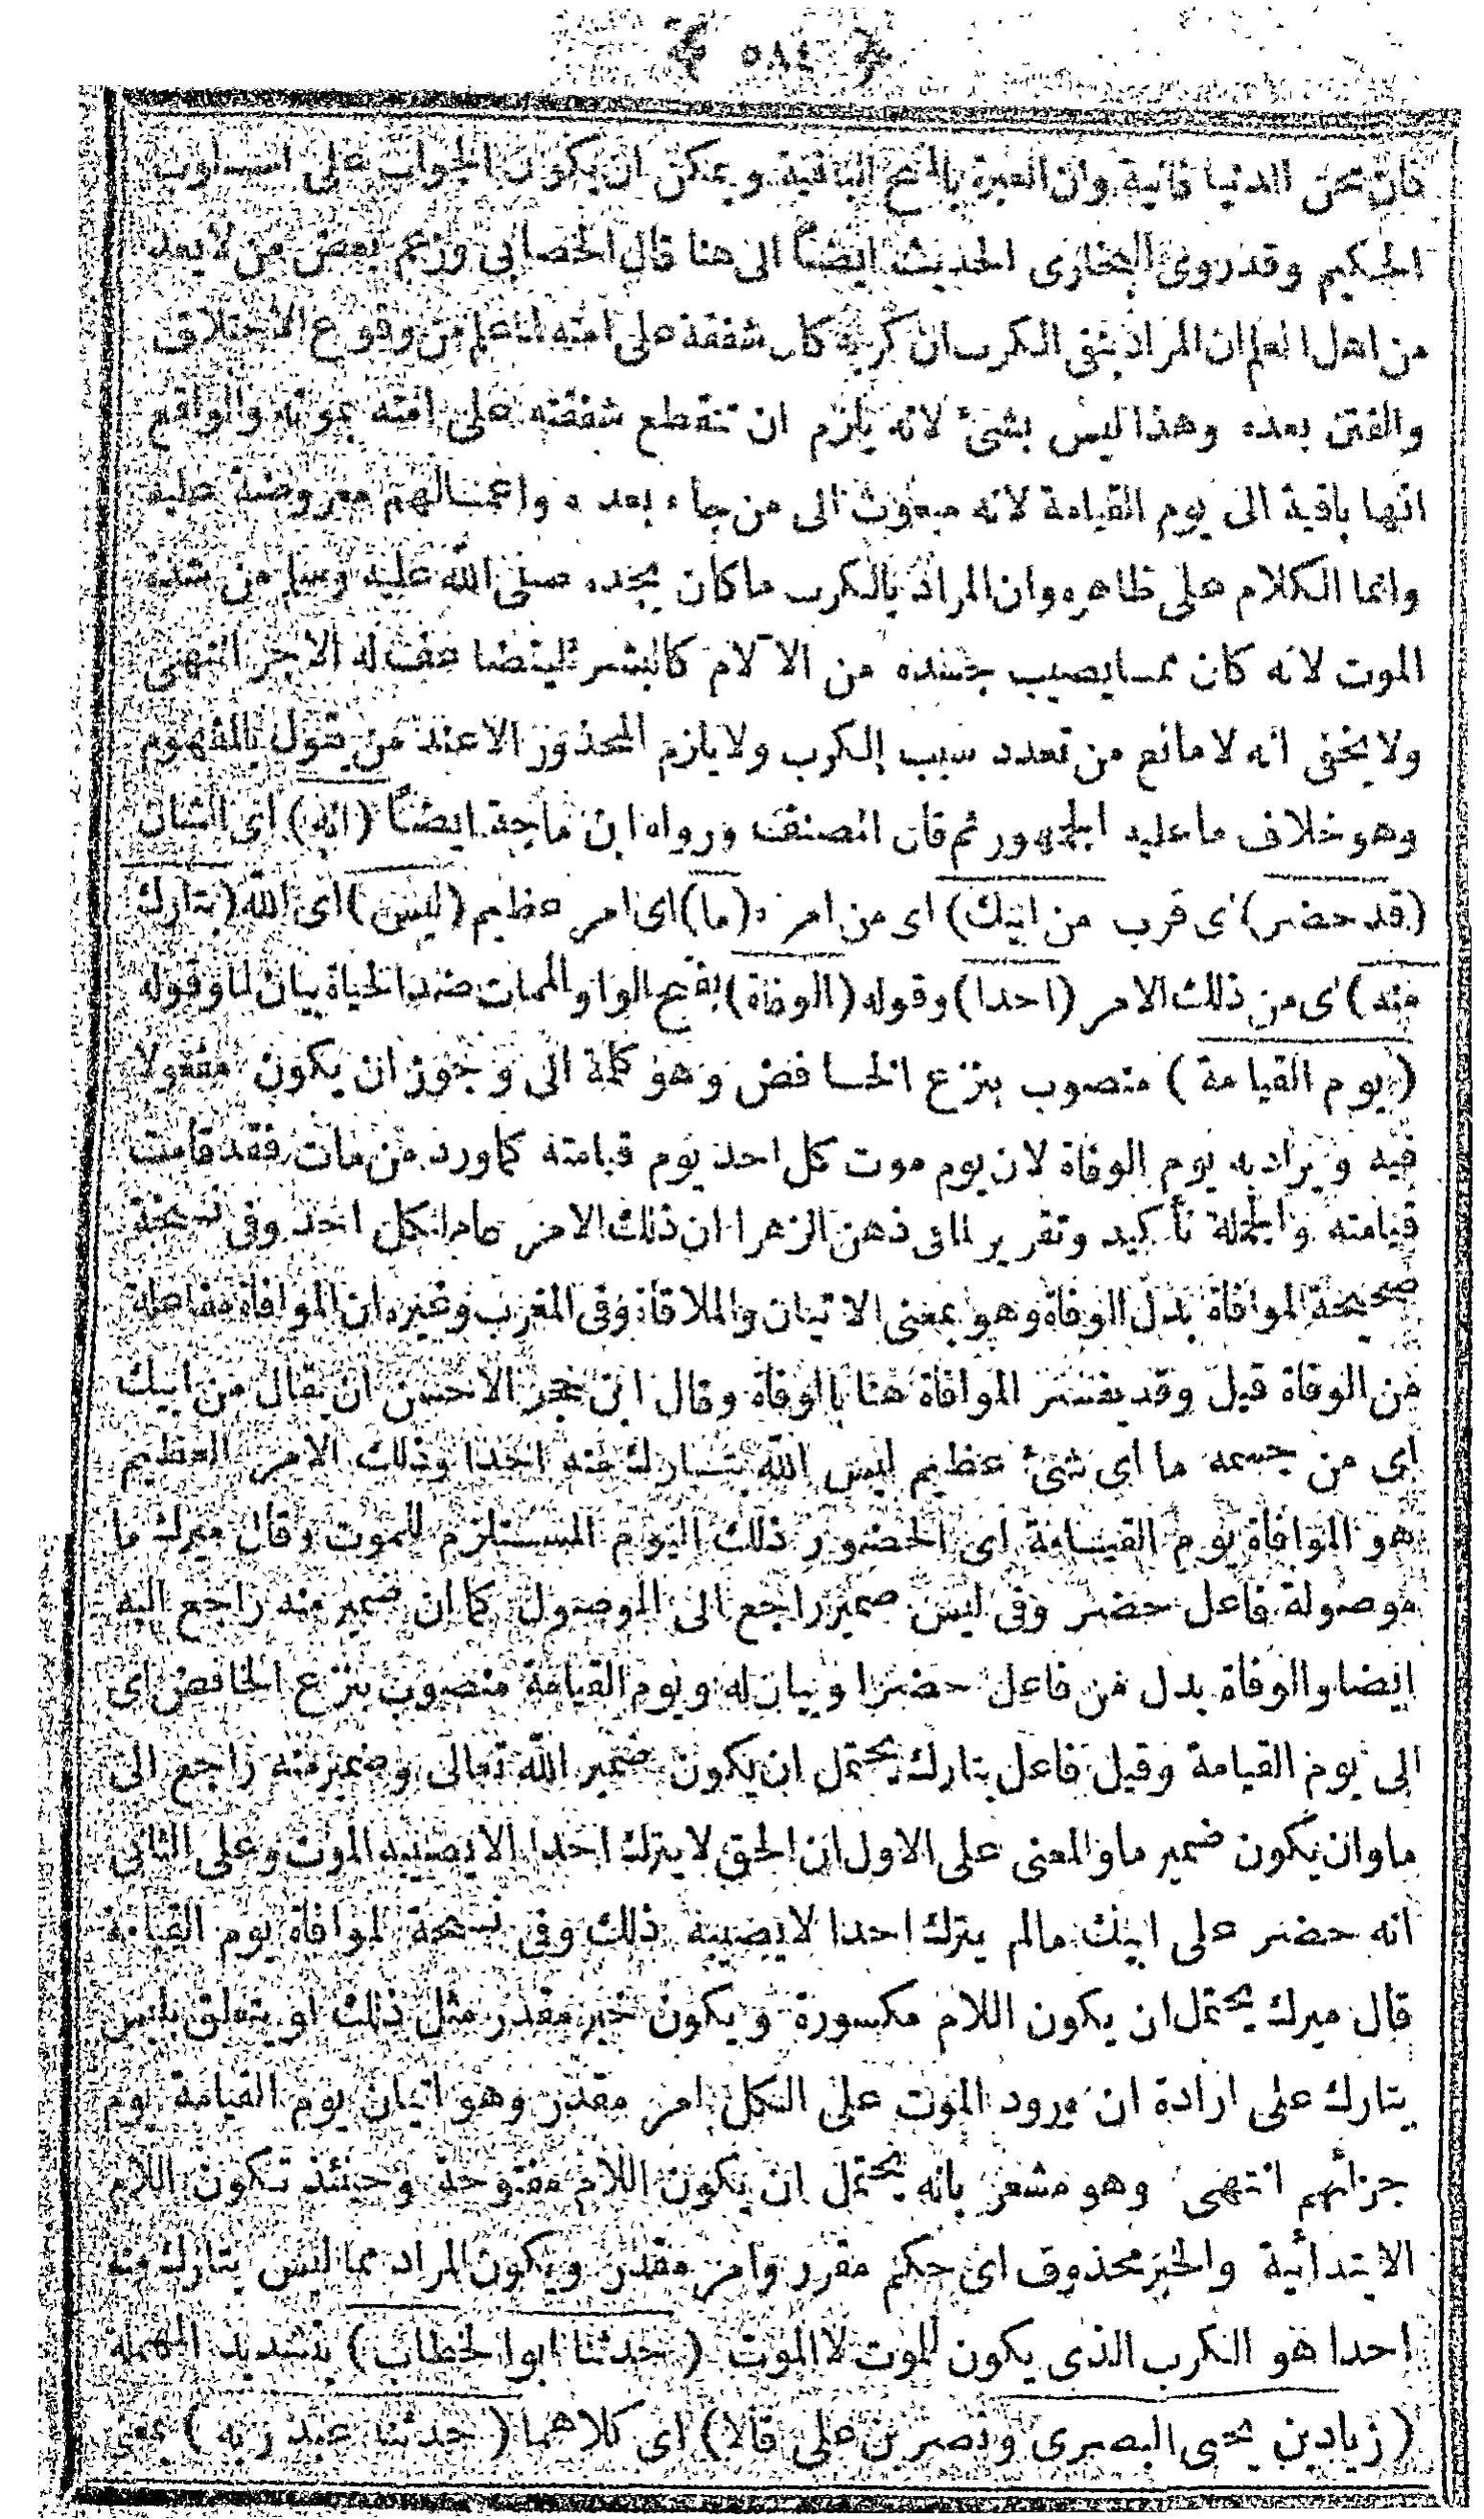 ﴿ ٥٨٤ ﴾
فان محن الدنيا فانية وان العبرة بالمنح الباقية ويمكن ان يكون الجواب على اسلوب
الحكيم وقد روى البخارى الحديث ايضاً الى هنا قال الخطابى وزعم بعض من لا يعد
من اهل العلم ان المراد بنفى الكرب ان كربه كان شفقة على امته لما علم من وقوع الاختلاف
والفتن بعده وهذا ليس بشئ لانه يلزم ان تنقطع شفقته على امته بموته والواقع
انها باقية الى يوم القيامة لانه مبعوث الى من جاء بعده واعمالهم معروضة عليه
وانما الكلام على ظاهره وان المراد بالكرب ما كان يجده صلى الله عليه وسلم من شدة
الموت لانه كان مما يصيب جسده من الآلام كالبشر ليتضاعف له الاجر انتهى
ولا يخفى انه لا مانع من تعدد سبب الكرب ولا يلزم المحذور الا عند من يقول بالمفهوم
وهو خلاف ما عليه الجمهور ثم قال المصنف ورواه ابن ماجة ايضاً (انه) اى الشان
(قد حضر) اى قرب من ابيك) اى من امره (ما) اى امر عظيم (ليس) اى الله (بتارك
منه) اى من ذلك الامر (احدا) وقوله (الوفاة) بفتح الواو الممات ضد الحياة بيان لما وقوله
(يوم القيامة) منصوب بنزع الخافض وهو كلمة الى وجوز ان يكون مفعولا
فيه ويراد به يوم الوفاة لان يوم موت كل احد يوم قيامته كما ورد من مات فقد قامت
قيامته والجملة تأكيد وتقرير لما فى ذهن الزهرا ان ذلك الامر عام لكل احد وفى نسخة
صحيحة الموافاة بدل الوفاة وهو بمعنى الاتيان والملاقاة وفى المغرب وغيره ان الموافاة مفاعلة
من الوفاة قيل وقد يفسر الموافاة هنا بالوفاة وقال ابن حجر الاحسن ان يقال من ابيك
اى من جسمه ما اى شئ عظيم ليس الله بتارك منه احدا وذلك الامر العظيم
هو الموافاة يوم القيامة اى الحضور ذلك اليوم المستلزم للموت وقال ميرك ما
موصولة فاعل حضر وفى ليس ضمير راجع الى الموصول كما ان ضمير منه راجع اليه
ايضا والوفاة بدل من فاعل حضر او بيان له ويوم القيامة منصوب بنزع الخافض اى
الى يوم القيامة وقيل فاعل بتارك يحتمل ان يكون ضمير الله تعالى وضمير منه راجع الى
ما وان يكون ضمير ما والمعنى على الاول ان الحق لا يترك احدا الا يصيبه الموت وعلى الثانى
انه حضر على ابيك ما لم يترك احدا لا يصيبه ذلك وفى نسخة لموافاة يوم القيامة
قال ميرك يحتمل ان يكون اللام مكسورة ويكون خبر مقدر مثل ذلك او يتعلق بليس
بتارك على ارادة ان ورود الموت على الكل امر مقدر وهو اتيان يوم القيامة يوم
جزائهم انتهى وهو مشعر بانه يحتمل ان يكون اللام مفتوحة وحينئذ تكون اللام
الابتدائية والخبر محذوف اى حكم مقرر وامر مقدر ويكون المراد مما ليس بتارك منه
احدا هو الكرب الذى يكون للموت لا الموت (حدثنا ابو الخطاب) بتشديد المهملة
(زياد بن يحيى البصرى ونصر بن على قالا) اى كلاهما (حدثنا عبد ربه) بمعنى